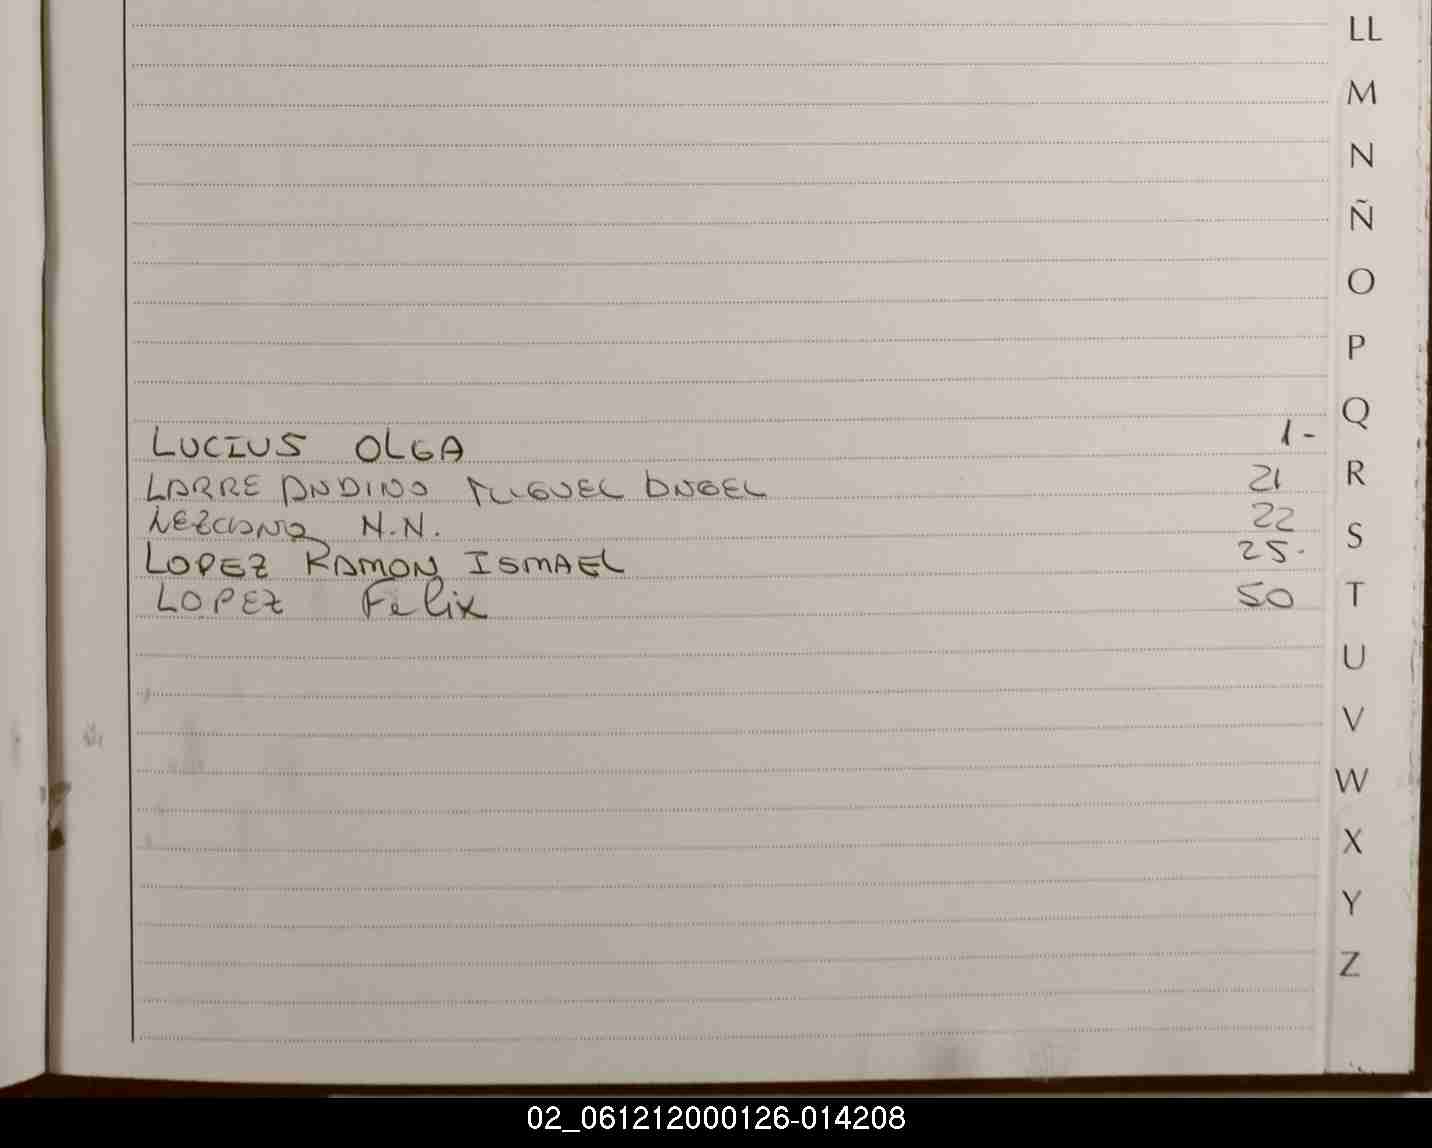 LL
M
N
Ñ
O
P
Q
LUCIUS OLGA 1-
R
LARRE ANDINO MIGUEL ANGEL 21
LEZCANO N.N. 22
S
LOPEZ RAMON ISMAEL 25.
LOPEZ Felix 50
T
U
V
W
X
Y
Z
02_061212000126-014208